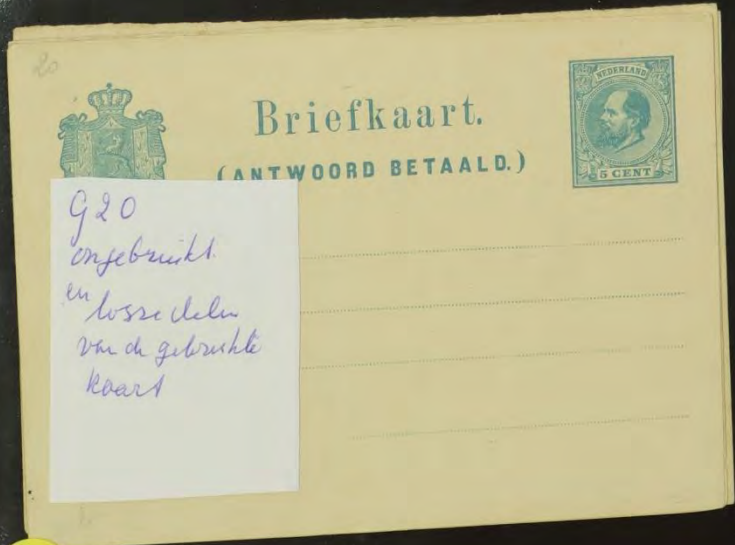 20
Briefkaart.
(ANTWOORD BETAALD.)
NEDERLAND
5 CENT
G20
ongebruikt
en losse delen
van de gebruikte
kaart